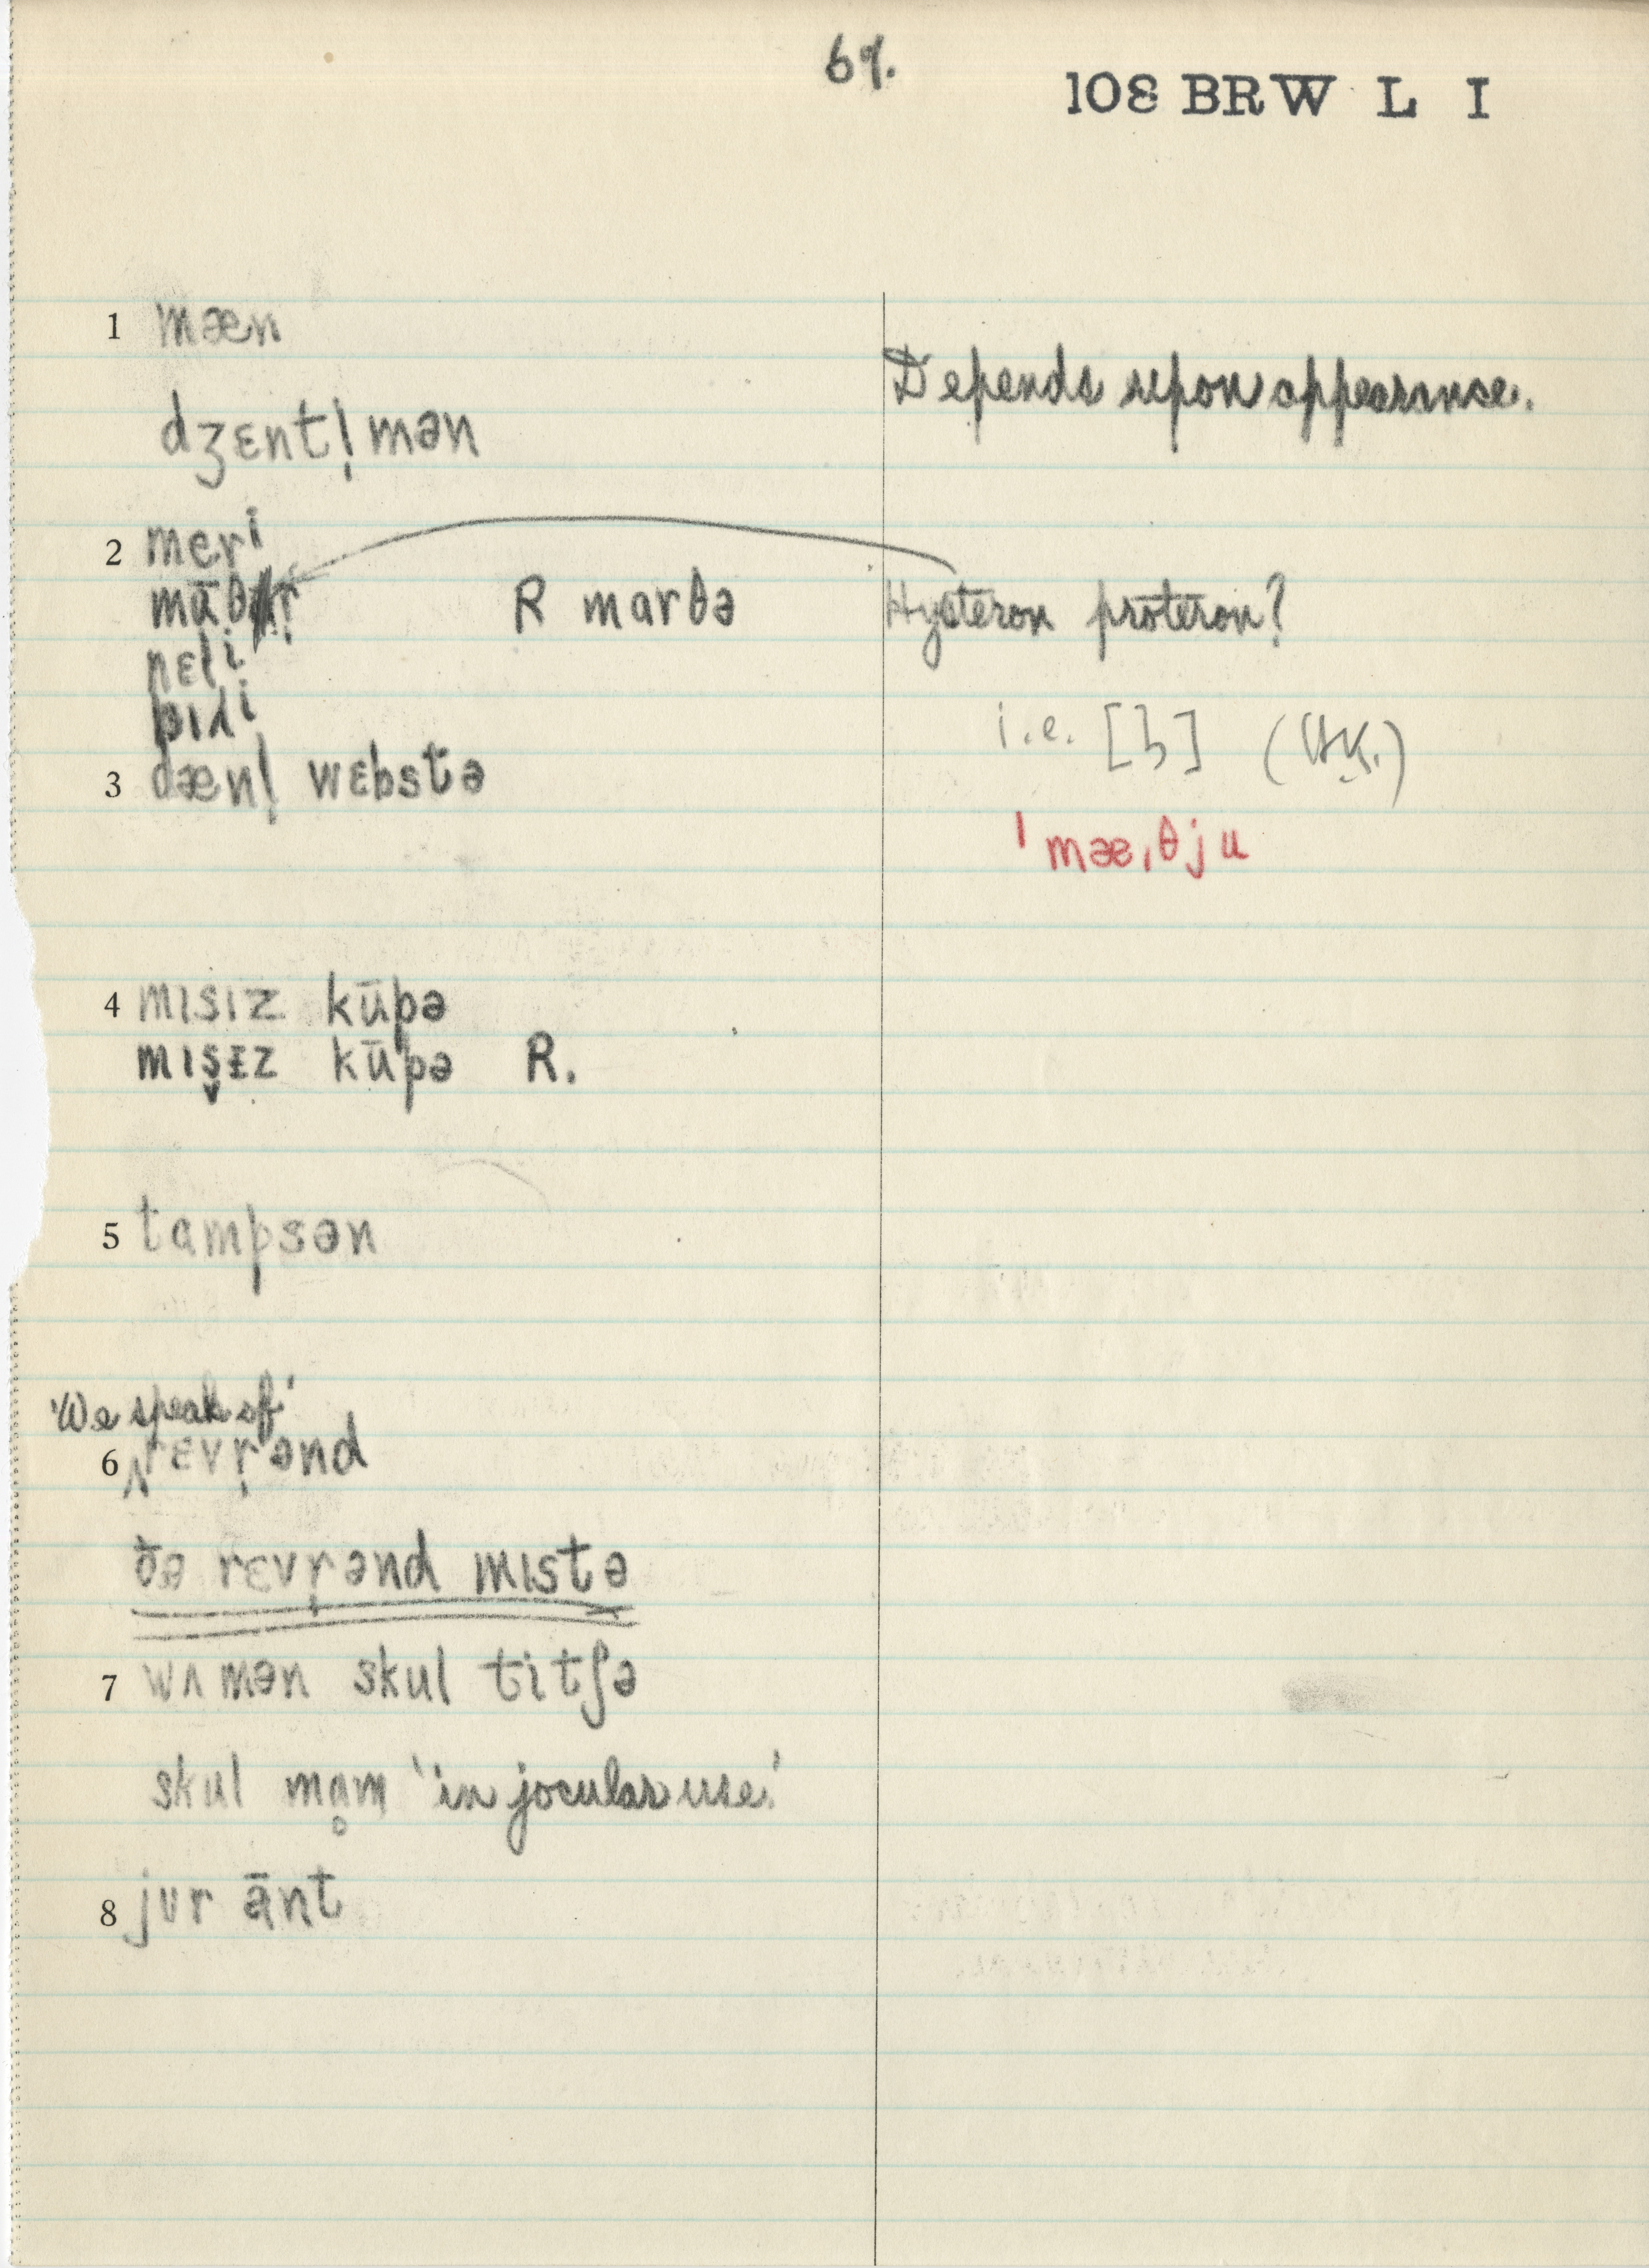 69.
108 BRW L I
1 mæn
Depends upon appearance.
dʒɛntl̩mən
2 meri
R marθə Hysteron proteron?
nɛli
i.e. [ɜ] (HK.)
3 dænl̩ wɛbstə
ˈmæˌθju
4 mɪsɪz kūpə
mɪs̬ɪz kūpə R.
5 tampsən
'We speak of'
6 ‸rɛvr̩ənd
ðə rɛvr̩ənd mɪstə
7 wʌmən skul titʃə
skul mɑ̥m 'in jocular use.'
8 jʊr ānt